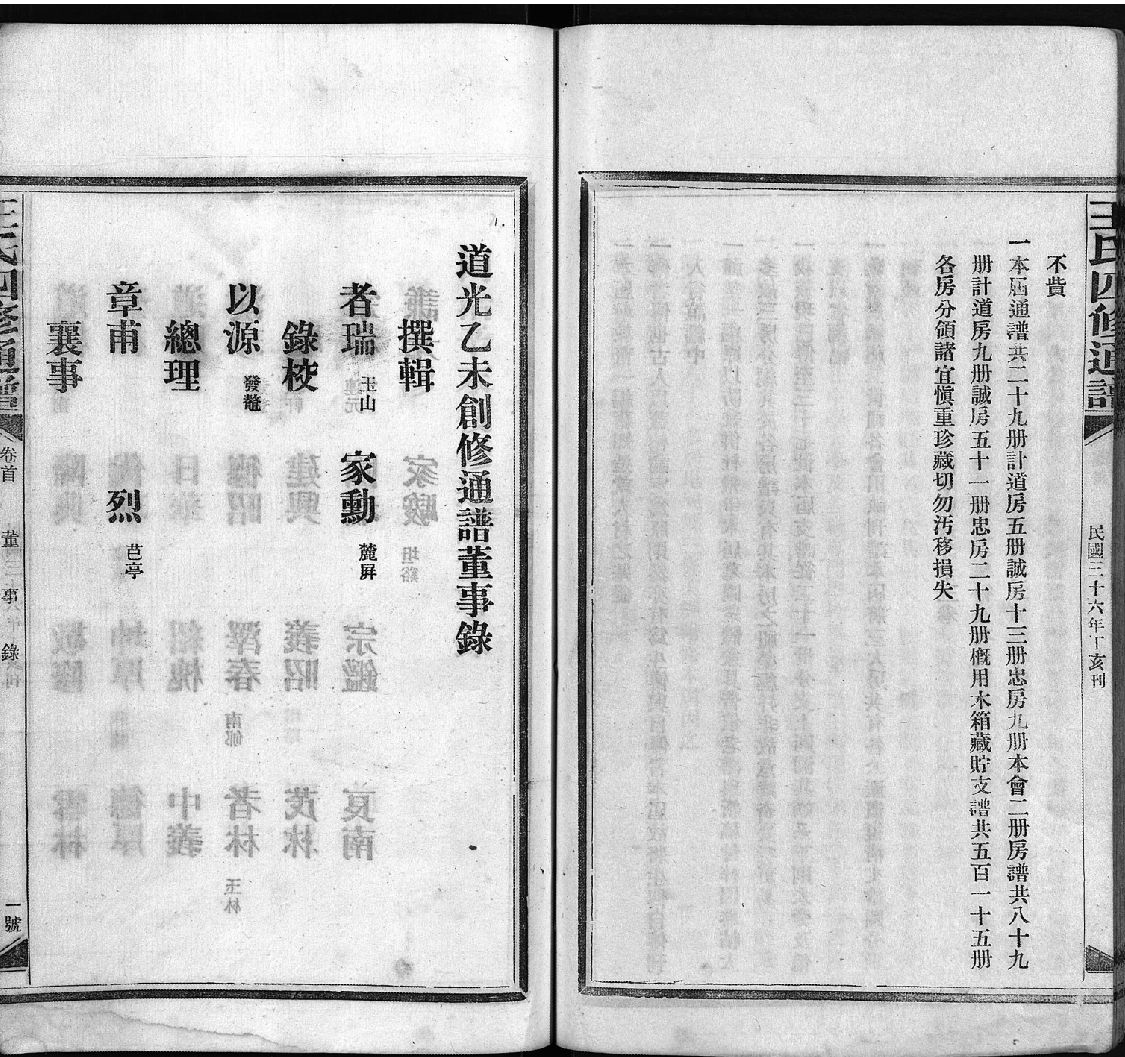 王氏四修通譜
民國三十六年丁亥刊
不貲
一本屆通譜共二十九册計道房五册誠房十三册忠房九册本會二册房譜共八十九
册計道房九册誠房五十一册忠房二十九册概用木箱藏貯支譜共五百一十五册
各房分領諸宜慎重珍藏切勿汚移損失
道光乙未創修通譜董事錄
撰輯
者瑞 玉山 家勳 麓屏
錄校
以源 發鼇
總理
章甫 烈 芭亭
襄事
王氏四修通譜
卷首
董事錄
一號